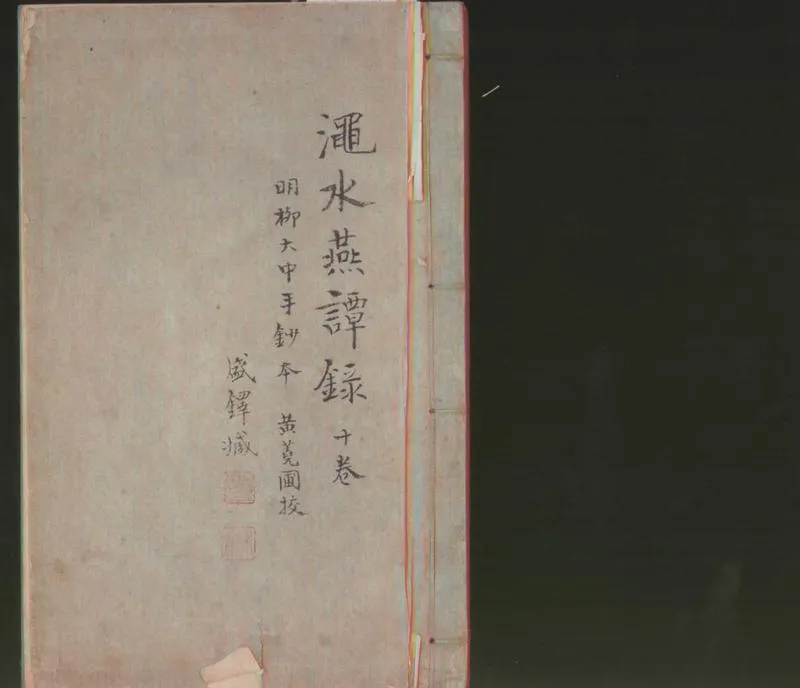 澠水燕譚錄十卷
明柳大中手鈔本 黃蕘圃挍
盛鐸藏